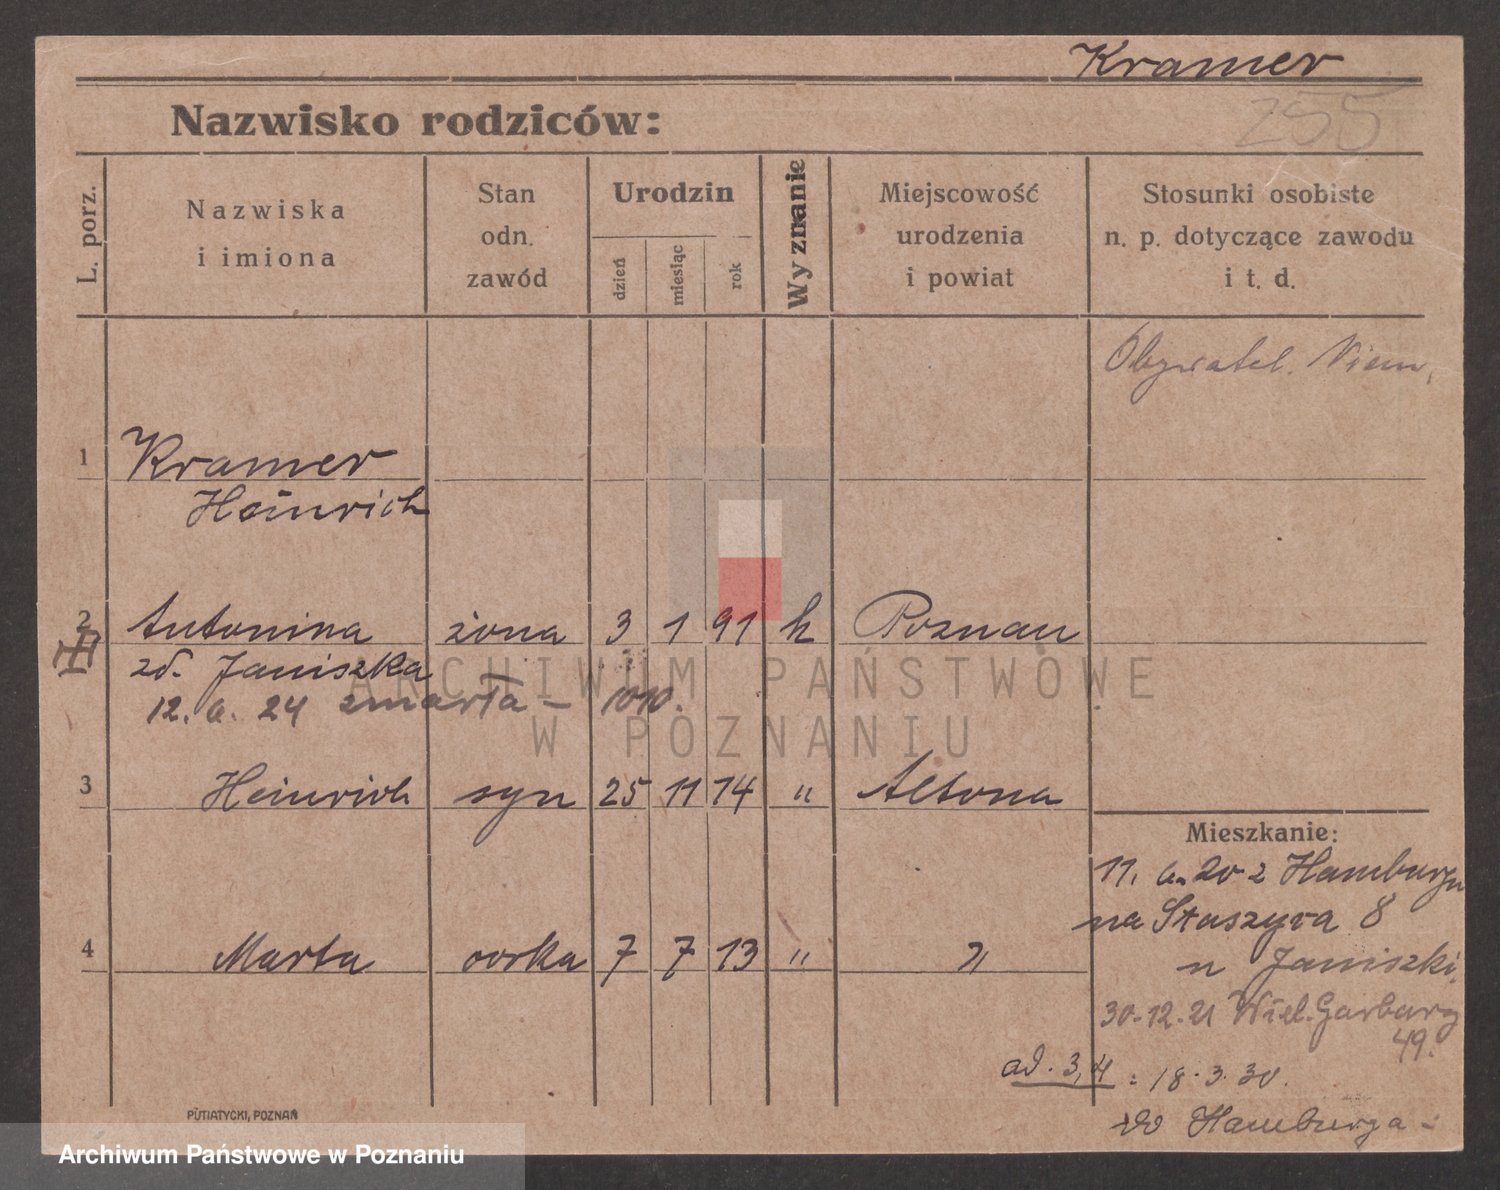 Kramer
255
Nazwisko rodziców:
L. porz.
Nazwiska
i imiona
Stan
odn.
zawód
Urodzin
dzień
miesiąc
rok
Wyznanie
Miejscowość
urodzenia
i powiat
Stosunki osobiste
n. p. dotyczące zawodu
i t. d.
Obywatel. Niem.
1 Kramer
Heinrich
2 Antonina żona 3 1 91 k Poznań
zd. Janiszka
12. 6. 24 zmarła –
3 Heinrich syn 25 11 14 " Altona
Mieszkanie:
11. 6. 20 z Hamburga
na Staszyca 8
4 Marta córka 7 7 13 " "
u Janiszki
30-12-21 Wiel. Garbary
49.
ad. 3,4 : 18.3.30.
do Hamburga -
PUTIATYCKI, POZNAŃ
ARCHIWUM PAŃSTWOWE
W POZNANIU
Archiwum Państwowe w Poznaniu